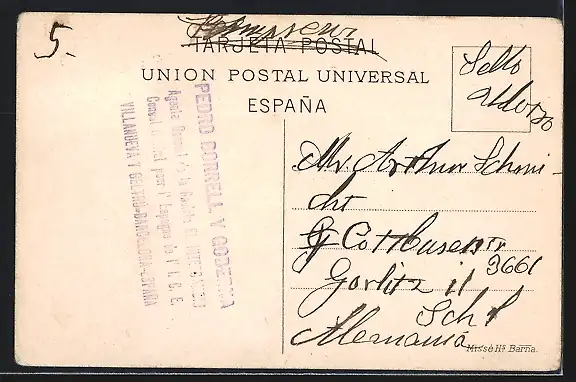 5.
Impreso
TARJETA POSTAL
UNION POSTAL UNIVERSAL
ESPAÑA
Sello
al dorso
PEDRO BORRELL Y GOBERNA
VILLANUEVA Y GELTRÚ-BARCELONA-ESPAÑA
Mr. Arthur Schmi-
dt
Cottbuserstr
3661
Gorlitz i/
Sch/
Alemania
Missé Hs Barna.